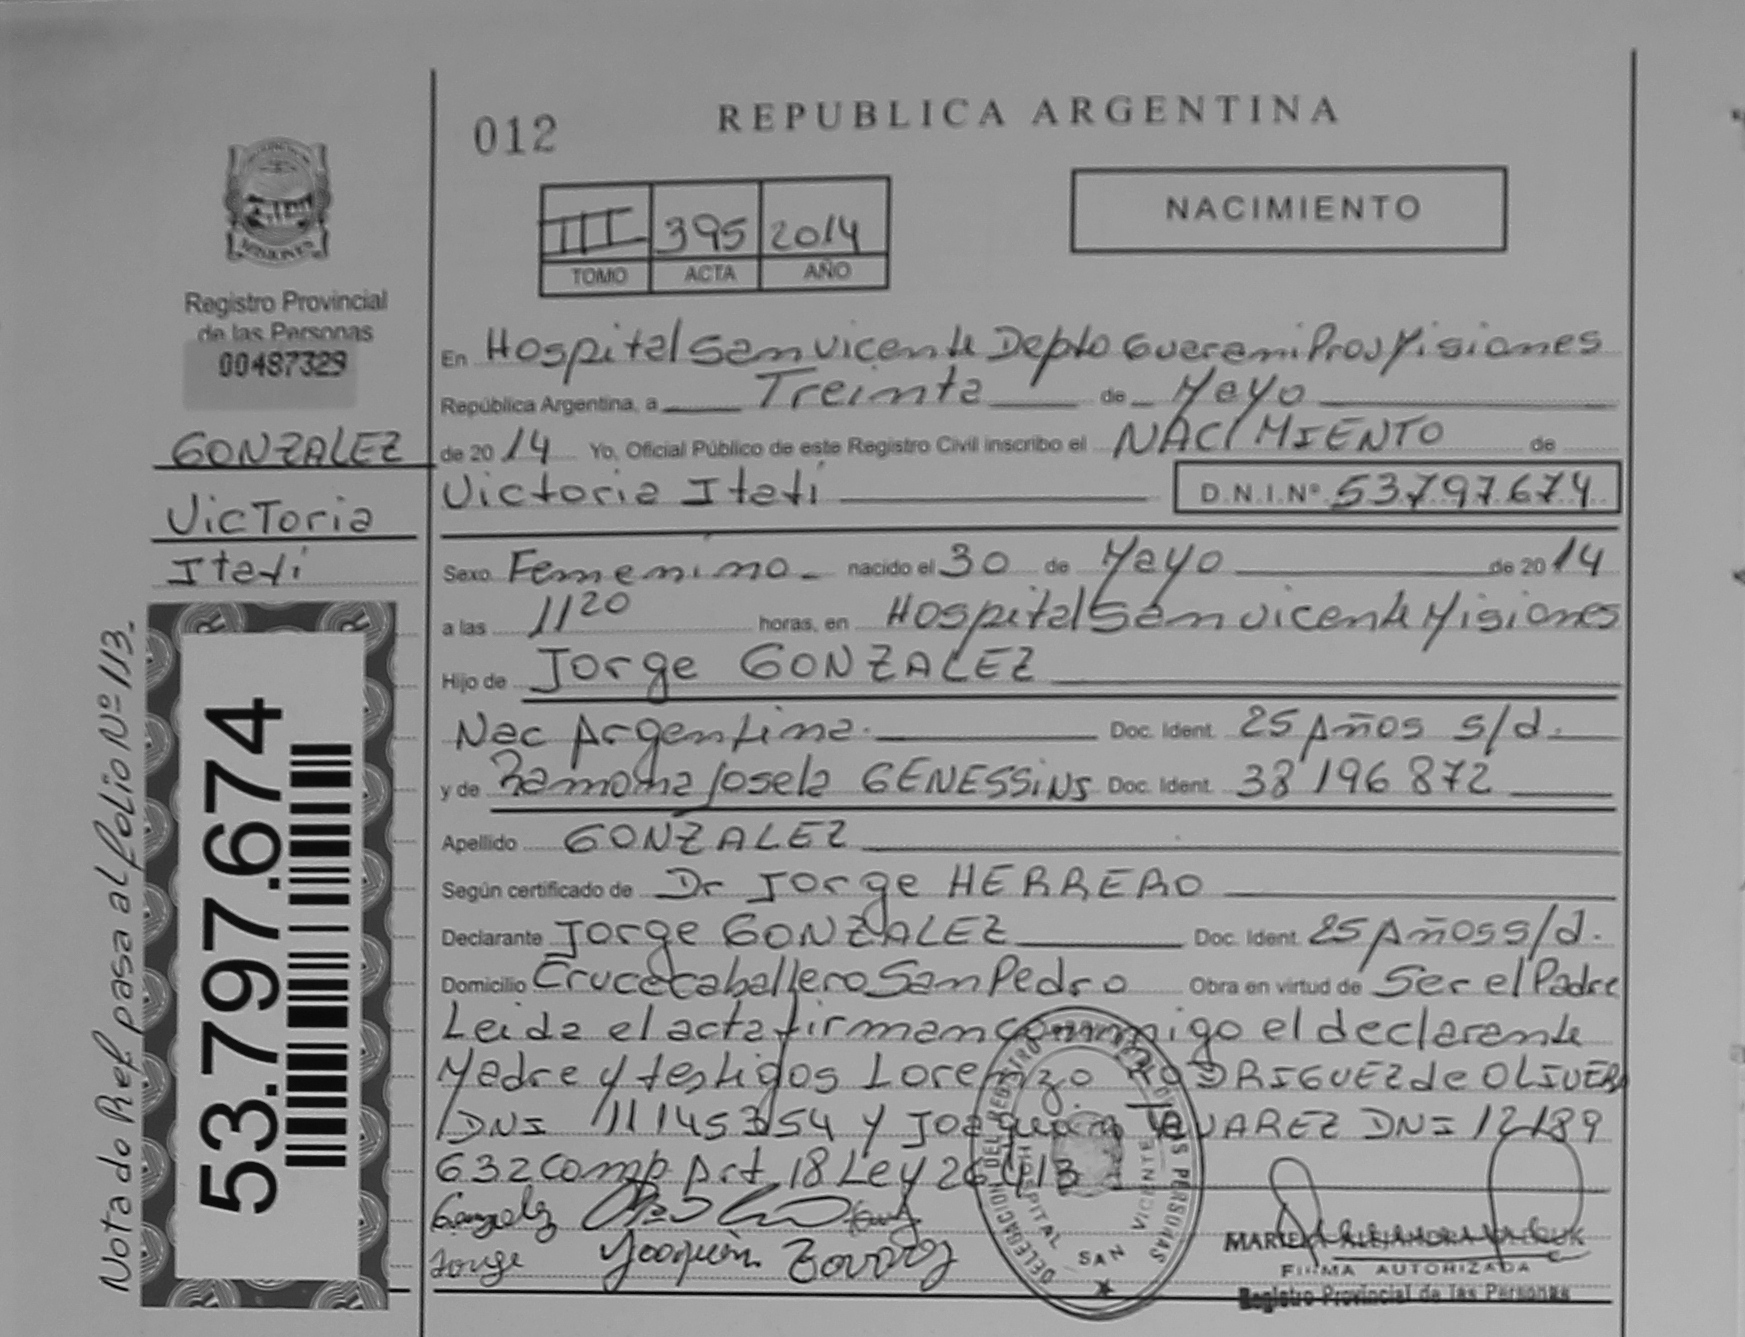 012
REPUBLICA ARGENTINA
NACIMIENTO
III 395 2014
TOMO ACTA AÑO
Registro Provincial
de las Personas
00487329
GONZALEZ
Victoria
Itatí
53.797.674
Nota do Ref pasa al folio Nº 113.
En Hospital San Vicente Depto Guarani Prov Misiones
República Argentina, a Treinta de Mayo
de 2014 Yo, Oficial Público de este Registro Civil inscribo el NACIMIENTO de
Victoria Itatí D.N.I.Nº 53.797.674
Sexo Femenino nacido el 30 de Mayo de 2014
a las 11 20 horas, en Hospital San Vicente Misiones
Hijo de Jorge GONZALEZ
Nac Argentina. Doc. Ident. 25 Años s/d.
y de Ramona Josela GENESSINS Doc. Ident. 38 196 872
Apellido GONZALEZ
Según certificado de Dr Jorge HERRERO
Declarante Jorge GONZALEZ Doc. Ident. 25 Años s/d.
Domicilio Cruce Caballero San Pedro Obra en virtud de Ser el Padre
Leida el acta firman conmigo el declarante
Madre y testigos Lorenzo RODRIGUEZ de OLIVERA
DNI 11145354 y Joaquin TAVAREZ DNI 12189
632 Comp. Art. 18 Ley 26413
Gonzalez
Jorge Joaquin
DELEGACION DEL REGISTRO DE LAS PERSONAS
HOSPITAL SAN VICENTE
MARIELA ALEJANDRA
FIRMA AUTORIZADA
Registro Provincial de las Personas